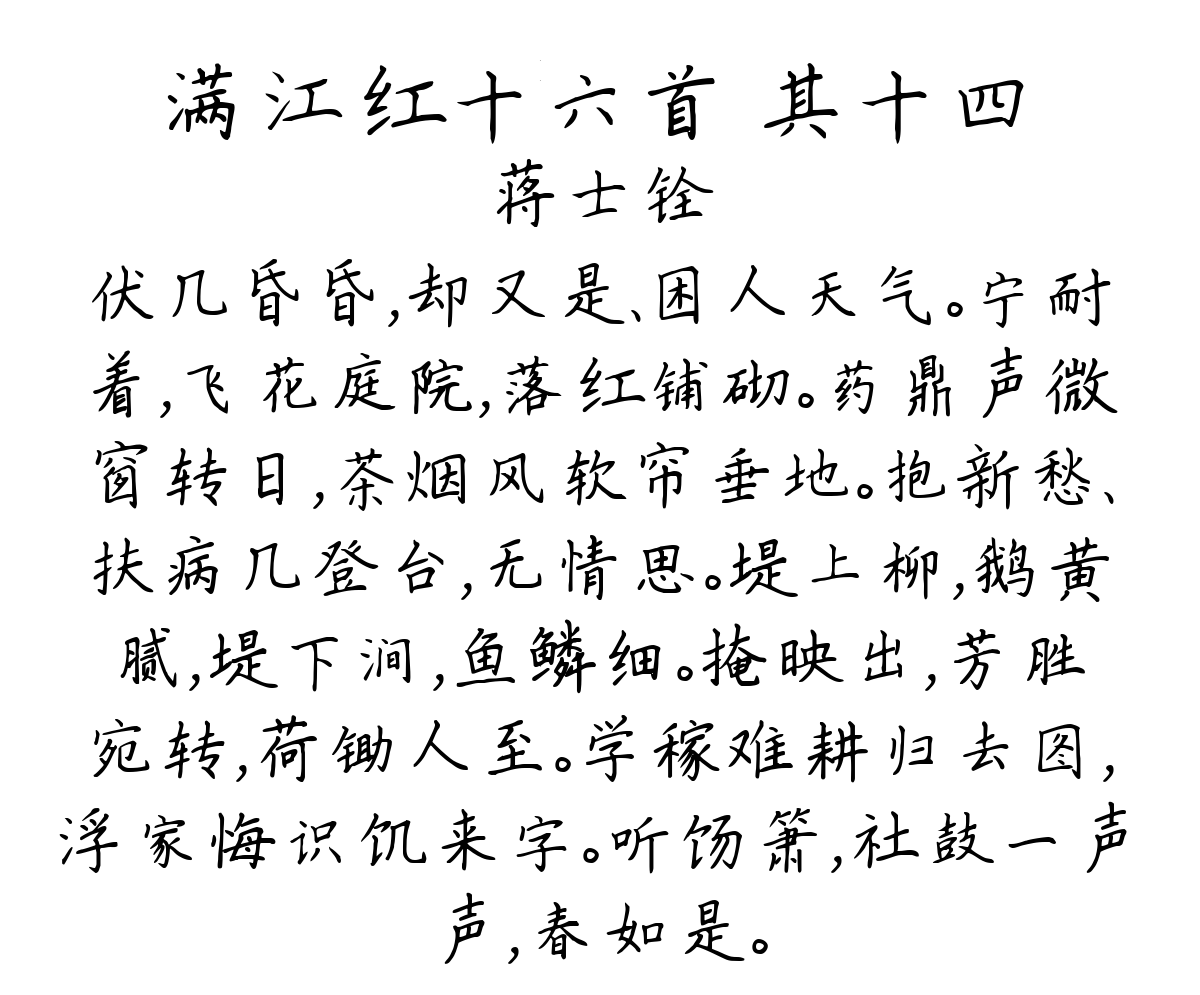 满江红十六首 其十四
蒋士铨
伏几昏昏,却又是、困人天气。宁耐
着,飞花庭院,落红铺砌。药鼎声微
窗转日,茶烟风软帘垂地。抱新愁、
扶病几登台,无情思。堤上柳,鹅黄
腻,堤下涧,鱼鳞细。掩映出,芳胜
宛转,荷锄人至。学稼难耕归去图,
浮家悔识饥来字。听饧箫,社鼓一声
声,春如是。